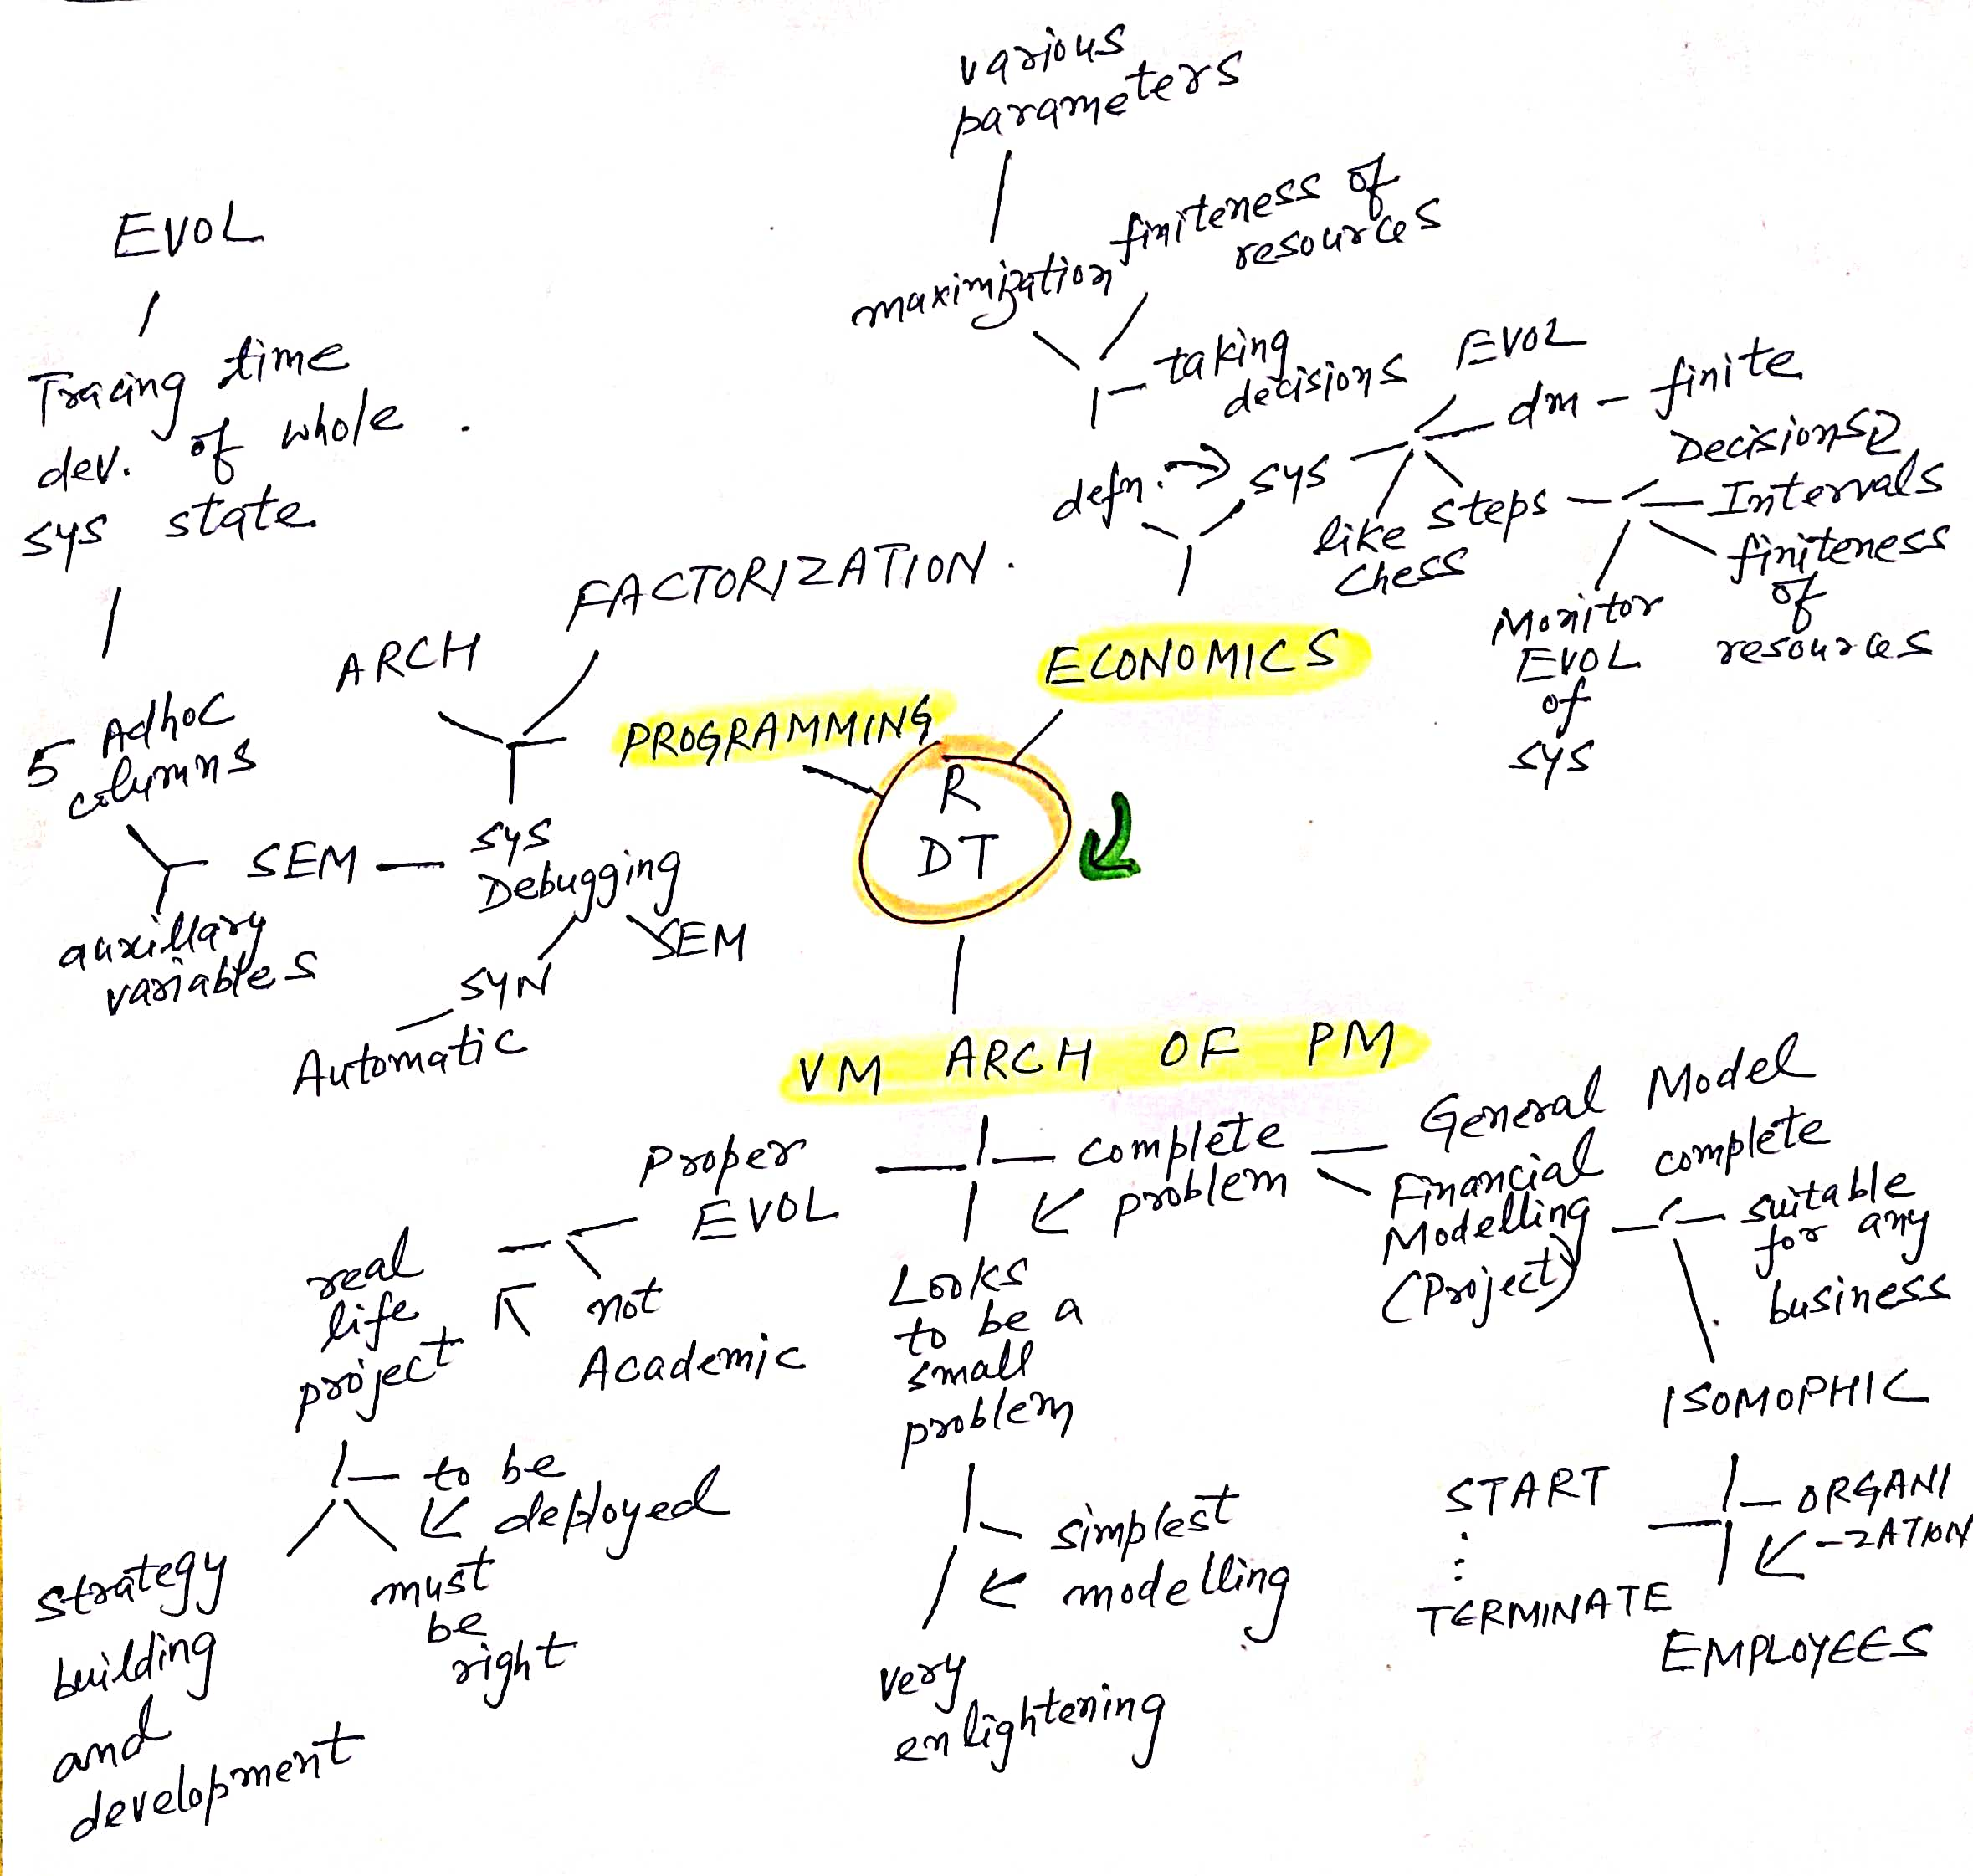 various
parameters
finiteness of
resources
maximization
taking
decisions
EVOL
dm - finite
Decisions
Intervals
finiteness
of
resources
defn. → sys
like steps
chess
Monitor
EVOL
of
sys
ECONOMICS
EVOL
Tracing time
dev. of whole
sys state
5 Adhoc
columns
auxillary
variables
SEM
ARCH
FACTORIZATION.
sys
Debugging
SEM
SYN
Automatic
PROGRAMMING
R
DT
VM ARCH OF PM
Proper
EVOL
real
life
project
not
Academic
to be
deployed
must
be
right
strategy
building
and
development
Looks
to be a
small
problem
simplest
modelling
very
enlightening
complete
problem
General Model
Financial
Modelling
(Project)
complete
suitable
for any
business
ISOMOPHIC
START
:
:
TERMINATE
ORGANI
-ZATION
EMPLOYEES